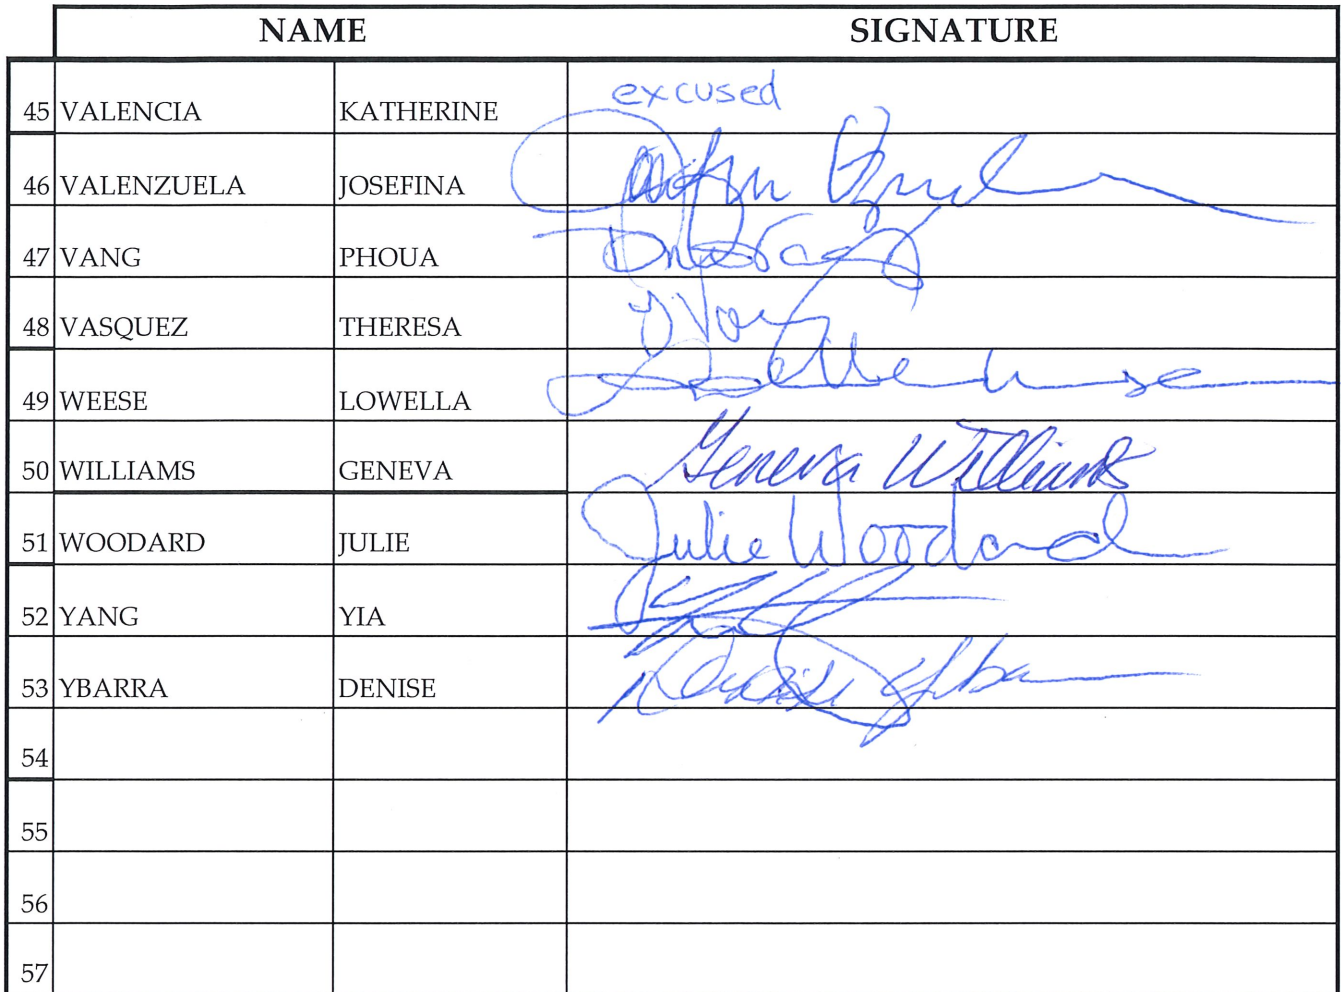 NAME SIGNATURE
45 VALENCIA KATHERINE excused
46 VALENZUELA JOSEFINA
47 VANG PHOUA
48 VASQUEZ THERESA
49 WEESE LOWELLA
50 WILLIAMS GENEVA Geneva Williams
51 WOODARD JULIE Julie Woodard
52 YANG YIA
53 YBARRA DENISE Denise Ybarra
54
55
56
57